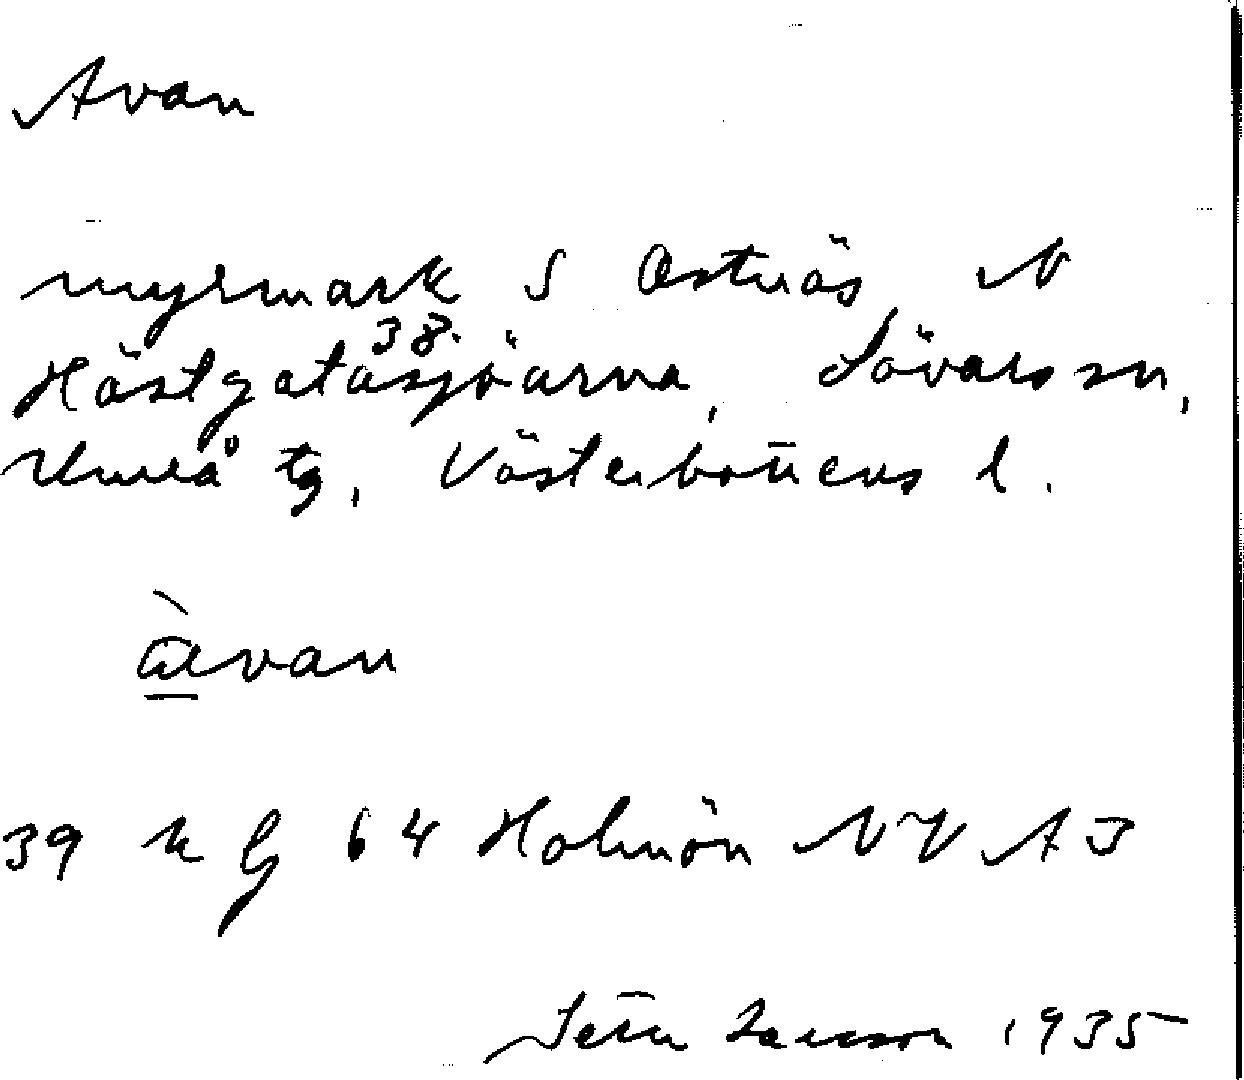 Avan
myrmark S Ostnäs, N
38.
Hästgatåsjöarna, Sävars sn,
Umeå tg, Västerbottens l.
àvan
39 k G 64 Holmön NV A 3
1935